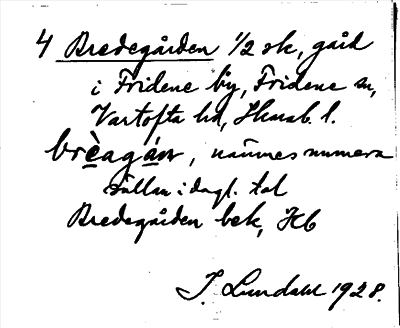 4 Bredegården 1/2 sk, gård
i Fridene by, Fridene sn,
Vartofta hd, Skarab. l.
brèagáɷ, nämnes numera
sällan i dagl. tal
Bredegården bek, Hb
J. Lundahl 1928.